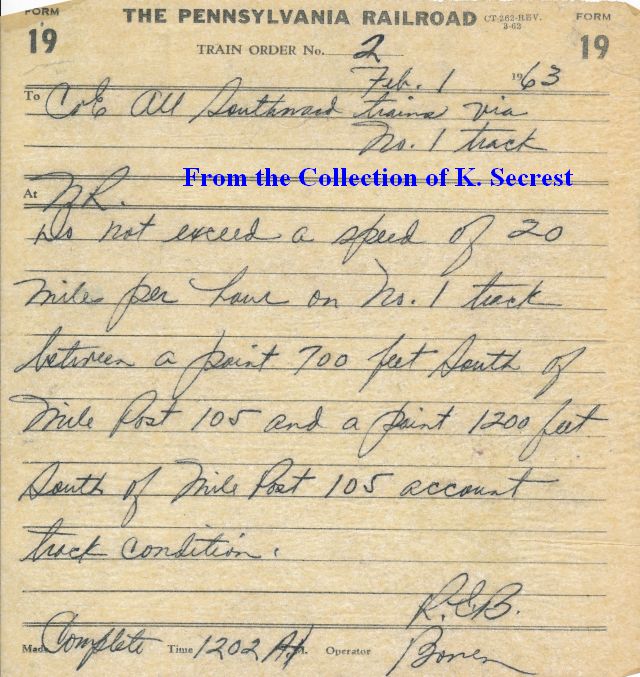 FORM 19 THE PENNSYLVANIA RAILROAD CT-262-REV. 3-62 FORM 19
TRAIN ORDER No. 2
Feb. 1 1963
To C&E All Southward trains via
No. 1 track
From the Collection of K. Secrest
At NR.
Do not exceed a speed of 20
miles per hour on No. 1 track
between a point 700 feet South of
Mile Post 105 and a point 1200 feet
South of Mile Post 105 account
track condition.
R.E.B.
Made Complete Time 1202 A M. Operator